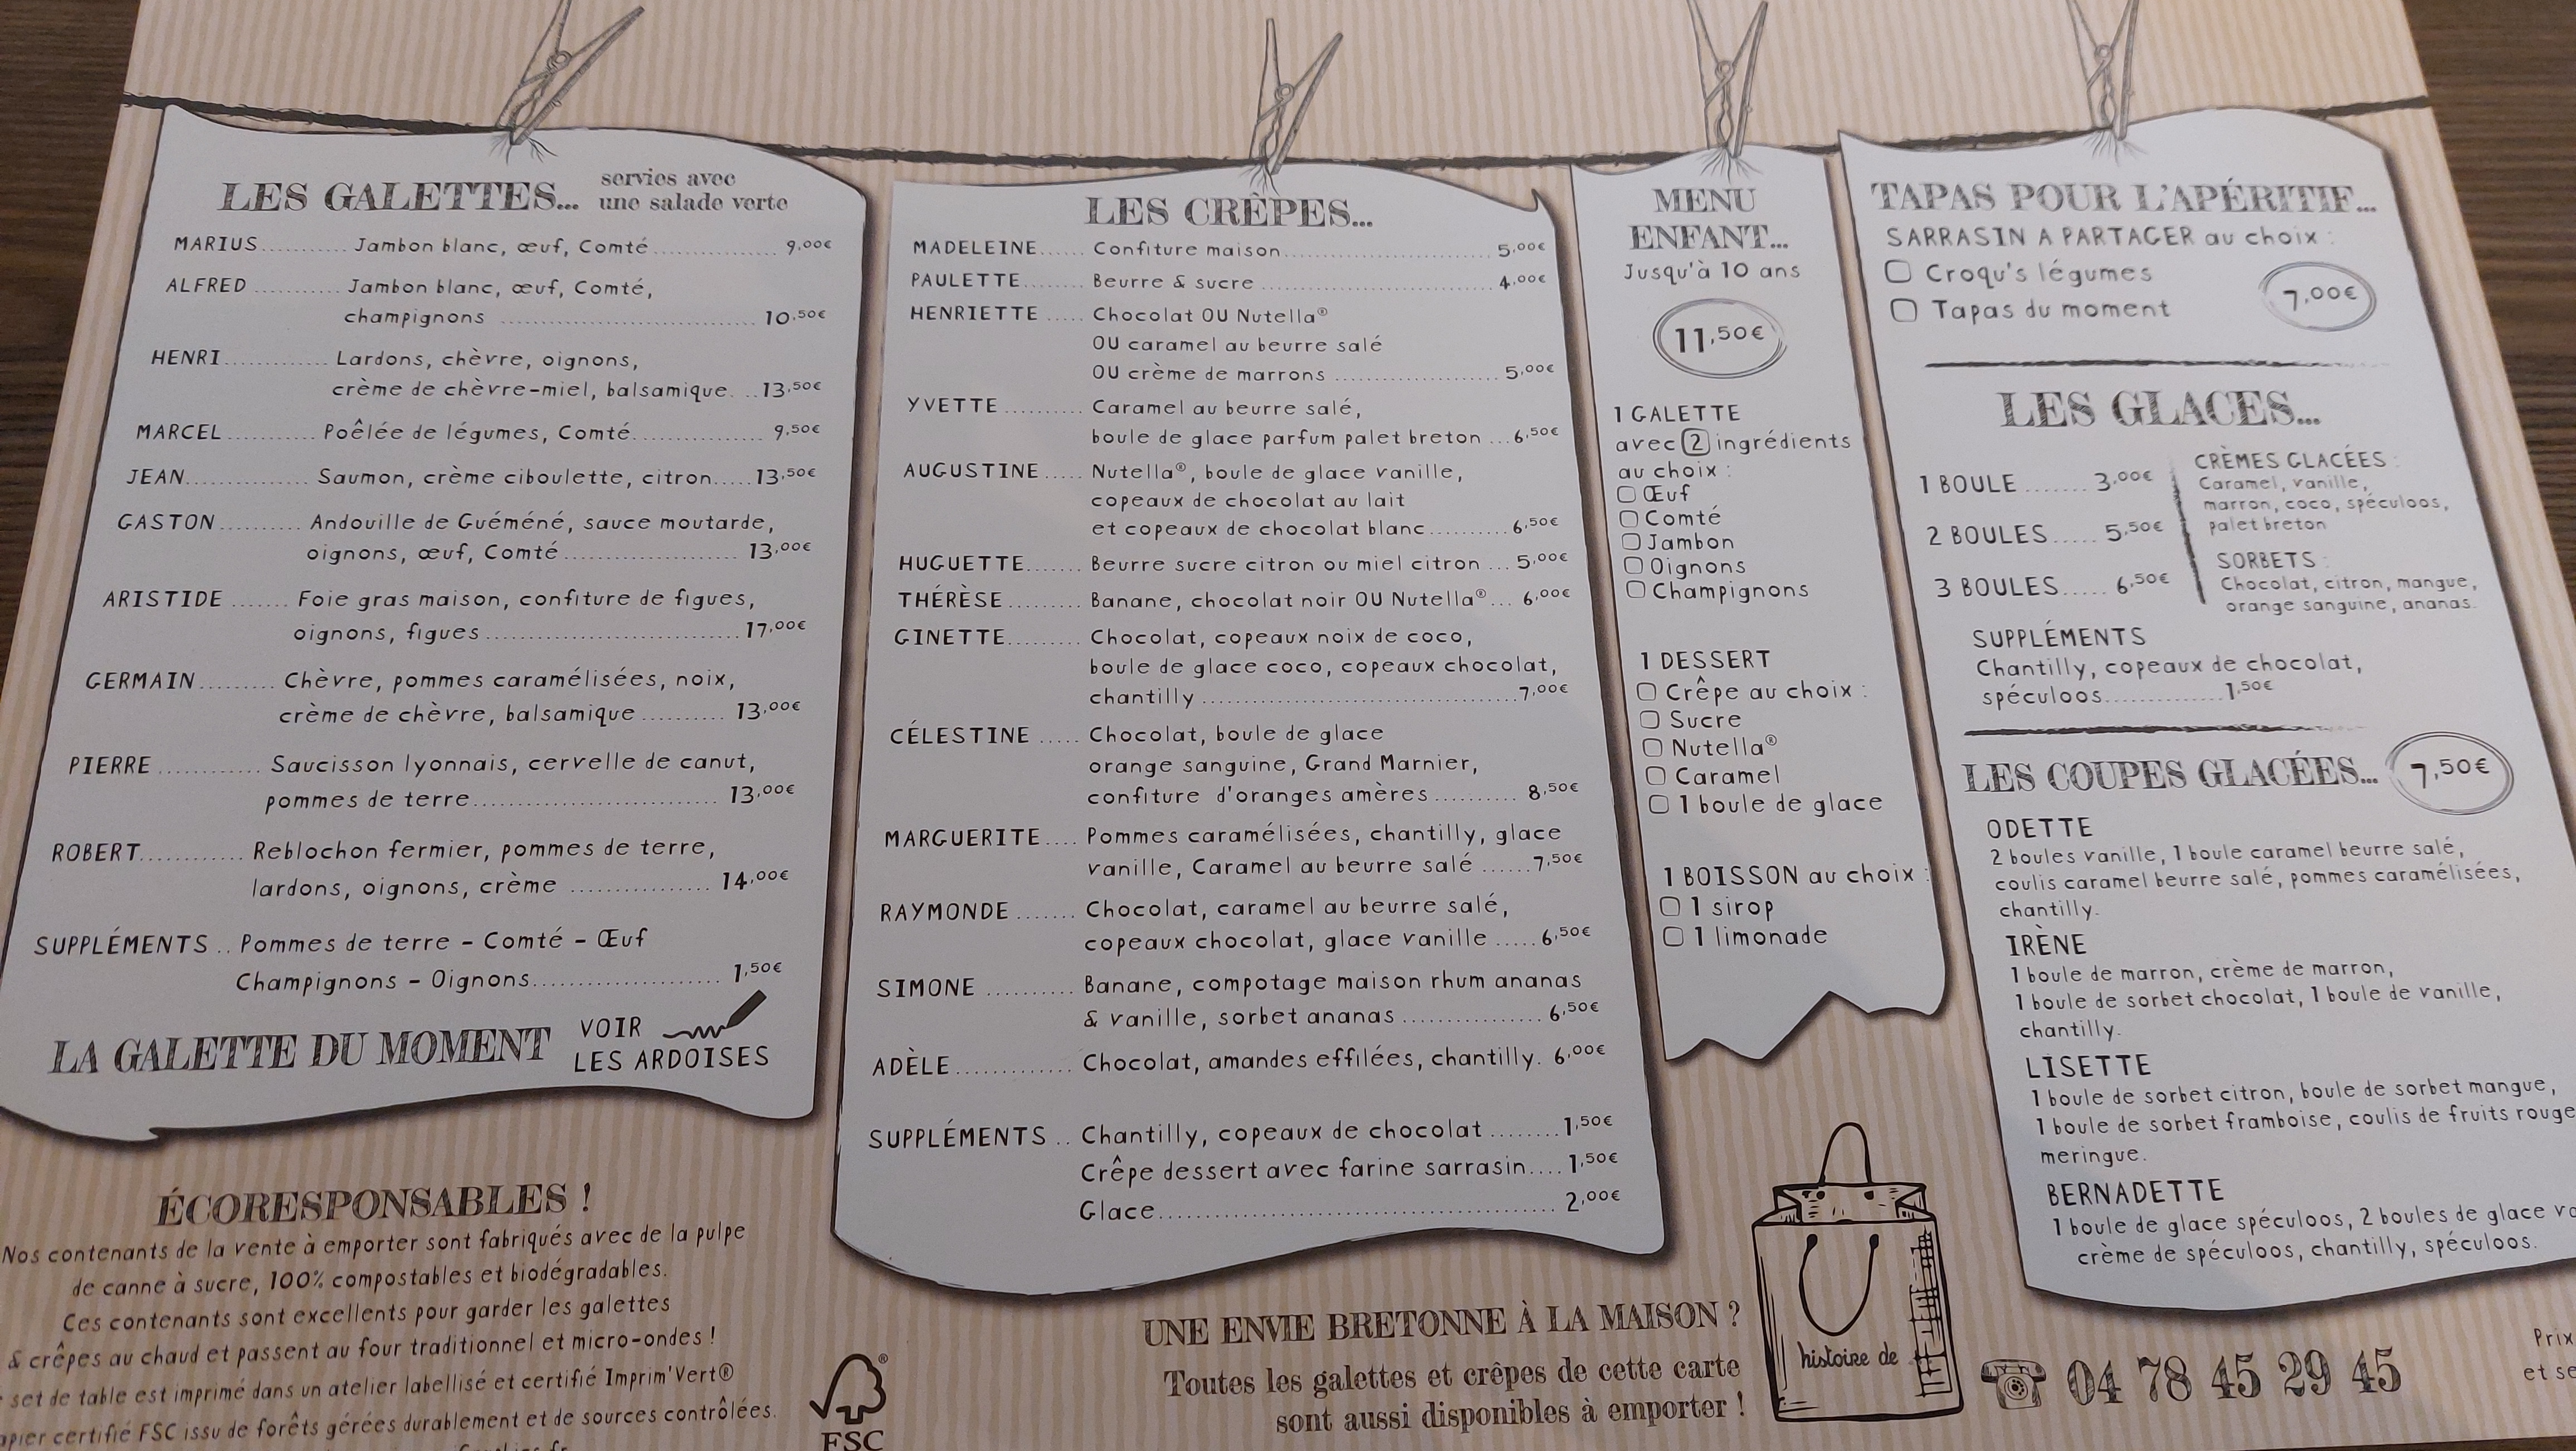 LES GALETTES... servies avec
une salade verte
MARIUS........... Jambon blanc, œuf, Comté................ 9,00€
ALFRED ........... Jambon blanc, œuf, Comté,
champignons ................................. 10,50€
HENRI............. Lardons, chèvre, oignons,
crème de chèvre-miel, balsamique. ..13,50€
MARCEL........... Poêlée de légumes, Comté................ 9,50€
JEAN............... Saumon, crème ciboulette, citron.....13,50€
GASTON .......... Andouille de Guéméné, sauce moutarde,
oignons, œuf, Comté ..................... 13,00€
ARISTIDE ....... Foie gras maison, confiture de figues,
oignons, figues ...............................17,00€
GERMAIN......... Chèvre, pommes caramélisées, noix,
crème de chèvre, balsamique .......... 13,00€
PIERRE ............ Saucisson lyonnais, cervelle de canut,
pommes de terre............................. 13,00€
ROBERT............ Reblochon fermier, pommes de terre,
lardons, oignons, crème ................ 14,00€
SUPPLÉMENTS .. Pommes de terre - Comté - Œuf
Champignons - Oignons...................... 1,50€
LA GALETTE DU MOMENT VOIR
LES ARDOISES
ÉCORESPONSABLES !
Nos contenants de la vente à emporter sont fabriqués avec de la pulpe
de canne à sucre, 100% compostables et biodégradables.
Ces contenants sont excellents pour garder les galettes
& crêpes au chaud et passent au four traditionnel et micro-ondes !
set de table est imprimé dans un atelier labellisé et certifié Imprim'Vert®
certifié FSC issu de forêts gérées durablement et de sources contrôlées.
FSC ®
LES CRÊPES...
MADELEINE...... Confiture maison............................. 5,00€
PAULETTE........ Beurre & sucre ................................ 4,00€
HENRIETTE ..... Chocolat OU Nutella®
OU caramel au beurre salé
OU crème de marrons ...................... 5,00€
YVETTE .......... Caramel au beurre salé,
boule de glace parfum palet breton ...6,50€
AUGUSTINE ..... Nutella®, boule de glace vanille,
copeaux de chocolat au lait
et copeaux de chocolat blanc..........6,50€
HUGUETTE....... Beurre sucre citron ou miel citron ... 5,00€
THÉRÈSE......... Banane, chocolat noir OU Nutella®... 6,00€
GINETTE......... Chocolat, copeaux noix de coco,
boule de glace coco, copeaux chocolat,
chantilly ........................................7,00€
CÉLESTINE ..... Chocolat, boule de glace
orange sanguine, Grand Marnier,
confiture d'oranges amères .......... 8,50€
MARGUERITE.... Pommes caramélisées, chantilly, glace
vanille, Caramel au beurre salé ......7,50€
RAYMONDE ....... Chocolat, caramel au beurre salé,
copeaux chocolat, glace vanille .....6,50€
SIMONE .......... Banane, compotage maison rhum ananas
& vanille, sorbet ananas ................. 6,50€
ADÈLE............. Chocolat, amandes effilées, chantilly. 6,00€
SUPPLÉMENTS .. Chantilly, copeaux de chocolat ........1,50€
Crêpe dessert avec farine sarrasin.... 1,50€
Glace............................................. 2,00€
MENU
ENFANT...
Jusqu'à 10 ans
11,50€
1 GALETTE
avec 2 ingrédients
au choix :
Œuf
Comté
Jambon
Oignons
Champignons
1 DESSERT
Crêpe au choix :
Sucre
Nutella®
Caramel
1 boule de glace
1 BOISSON au choix :
1 sirop
1 limonade
TAPAS POUR L'APÉRITIF...
SARRASIN A PARTAGER au choix :
Croqu's légumes
Tapas du moment
7,00€
LES GLACES...
1 BOULE ....... 3,00€
2 BOULES..... 5,50€
3 BOULES..... 6,50€
CRÈMES GLACÉES :
Caramel, vanille,
marron, coco, spéculoos,
palet breton
SORBETS :
Chocolat, citron, mangue,
orange sanguine, ananas.
SUPPLÉMENTS
Chantilly, copeaux de chocolat,
spéculoos..............1,50€
LES COUPES GLACÉES... 7,50€
ODETTE
2 boules vanille, 1 boule caramel beurre salé,
coulis caramel beurre salé, pommes caramélisées,
chantilly.
IRÈNE
1 boule de marron, crème de marron,
1 boule de sorbet chocolat, 1 boule de vanille,
chantilly.
LISETTE
1 boule de sorbet citron, boule de sorbet mangue,
1 boule de sorbet framboise, coulis de fruits rouge
meringue.
BERNADETTE
1 boule de glace spéculoos, 2 boules de glace
crème de spéculoos, chantilly, spéculoos.
UNE ENVIE BRETONNE À LA MAISON ?
Toutes les galettes et crêpes de cette carte
sont aussi disponibles à emporter !
histoire de
04 78 45 29 45
Prix
et